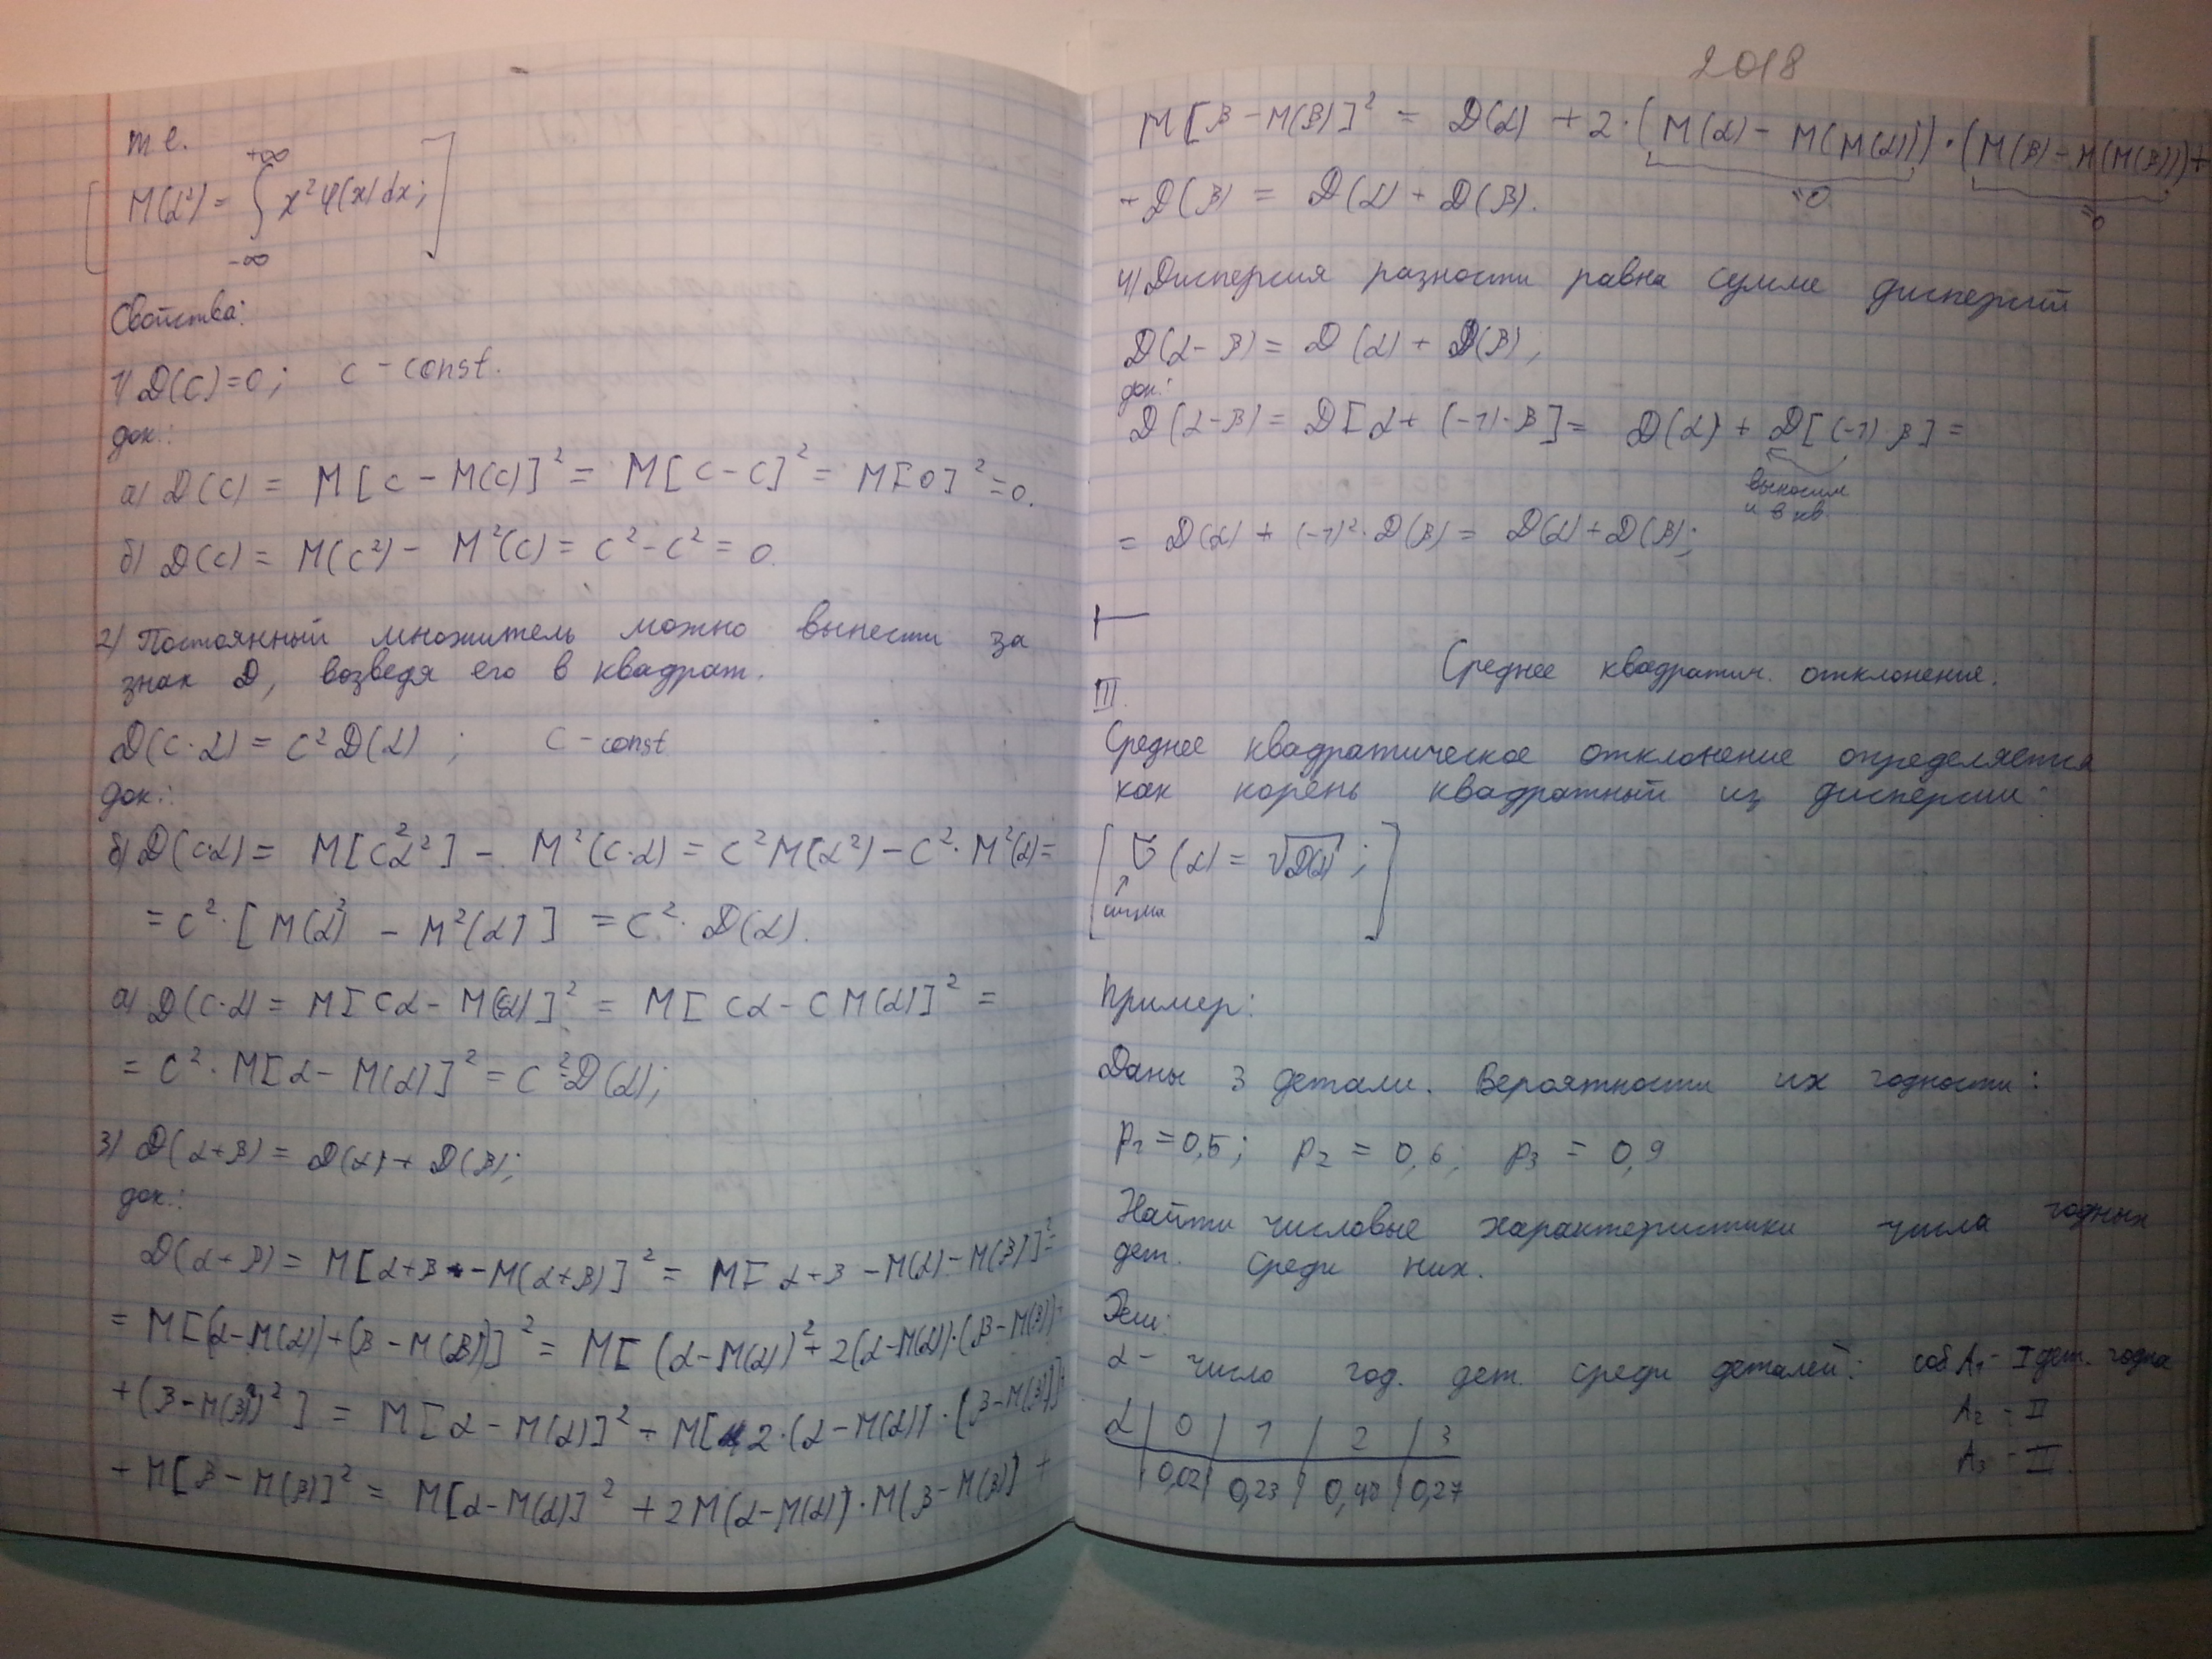 т е.
M(α²) = ∫ x² φ(x) dx;
+∞
-∞
Свойства:
1) D(C)=0; C - const.
док.:
а) D(C) = M[C - M(C)]² = M[C - C]² = M[0]² = 0.
б) D(C) = M(C²) - M²(C) = C² - C² = 0.
2) Постоянный множитель можно вынести за
знак D, возведя его в квадрат.
D(C·α) = C² D(α) ; C - const
док.:
б) D(Cα) = M[C²α²] - M²(C·α) = C² M(α²) - C²·M²(α) =
= C²·[M(α²) - M²(α)] = C²·D(α).
а) D(C·α) = M[Cα - M(Cα)]² = M[Cα - C M(α)]² =
= C²·M[α - M(α)]² = C²·D(α);
3) D(α+β) = D(α) + D(β);
док.:
D(α+β) = M[α+β - M(α+β)]² = M[α+β - M(α) - M(β)]² =
= M[(α-M(α))+(β - M(β))]² = M[(α-M(α))² + 2(α-M(α))·(β-M(β))+
+(β-M(β))²] = M[α - M(α)]² + M[2·(α-M(α))·(β-M(β))]+
+ M[β - M(β)]² = M[α-M(α)]² + 2M(α-M(α))·M(β-M(β)) +
2018
M[β - M(β)]² = D(α) + 2·(M(α) - M(M(α)))·(M(β) - M(M(β)))+
=0 =0
+ D(β) = D(α) + D(β).
4) Дисперсия разности равна сумме дисперсий
D(α-β) = D(α) + D(β);
док.:
D(α-β) = D[α + (-1)·β] = D(α) + D[(-1)β] =
выносим
и в кв.
= D(α) + (-1)²·D(β) = D(α)+D(β);
Среднее квадратич. отклонение.
III.
Среднее квадратическое отклонение определяется
как корень квадратный из дисперсии:
σ(α) = √D(α);
↑
сигма
Пример:
Даны 3 детали. Вероятности их годности:
p₁ = 0,5; p₂ = 0,6; p₃ = 0,9
Найти числовые характеристики числа годных
дет. среди них.
Реш:
α - число год. дет. среди деталей: соб A₁ - I дет. годна
A₂ - II
A₃ - III.
α | 0 | 1 | 2 | 3
| 0,02 | 0,23 | 0,48 | 0,27